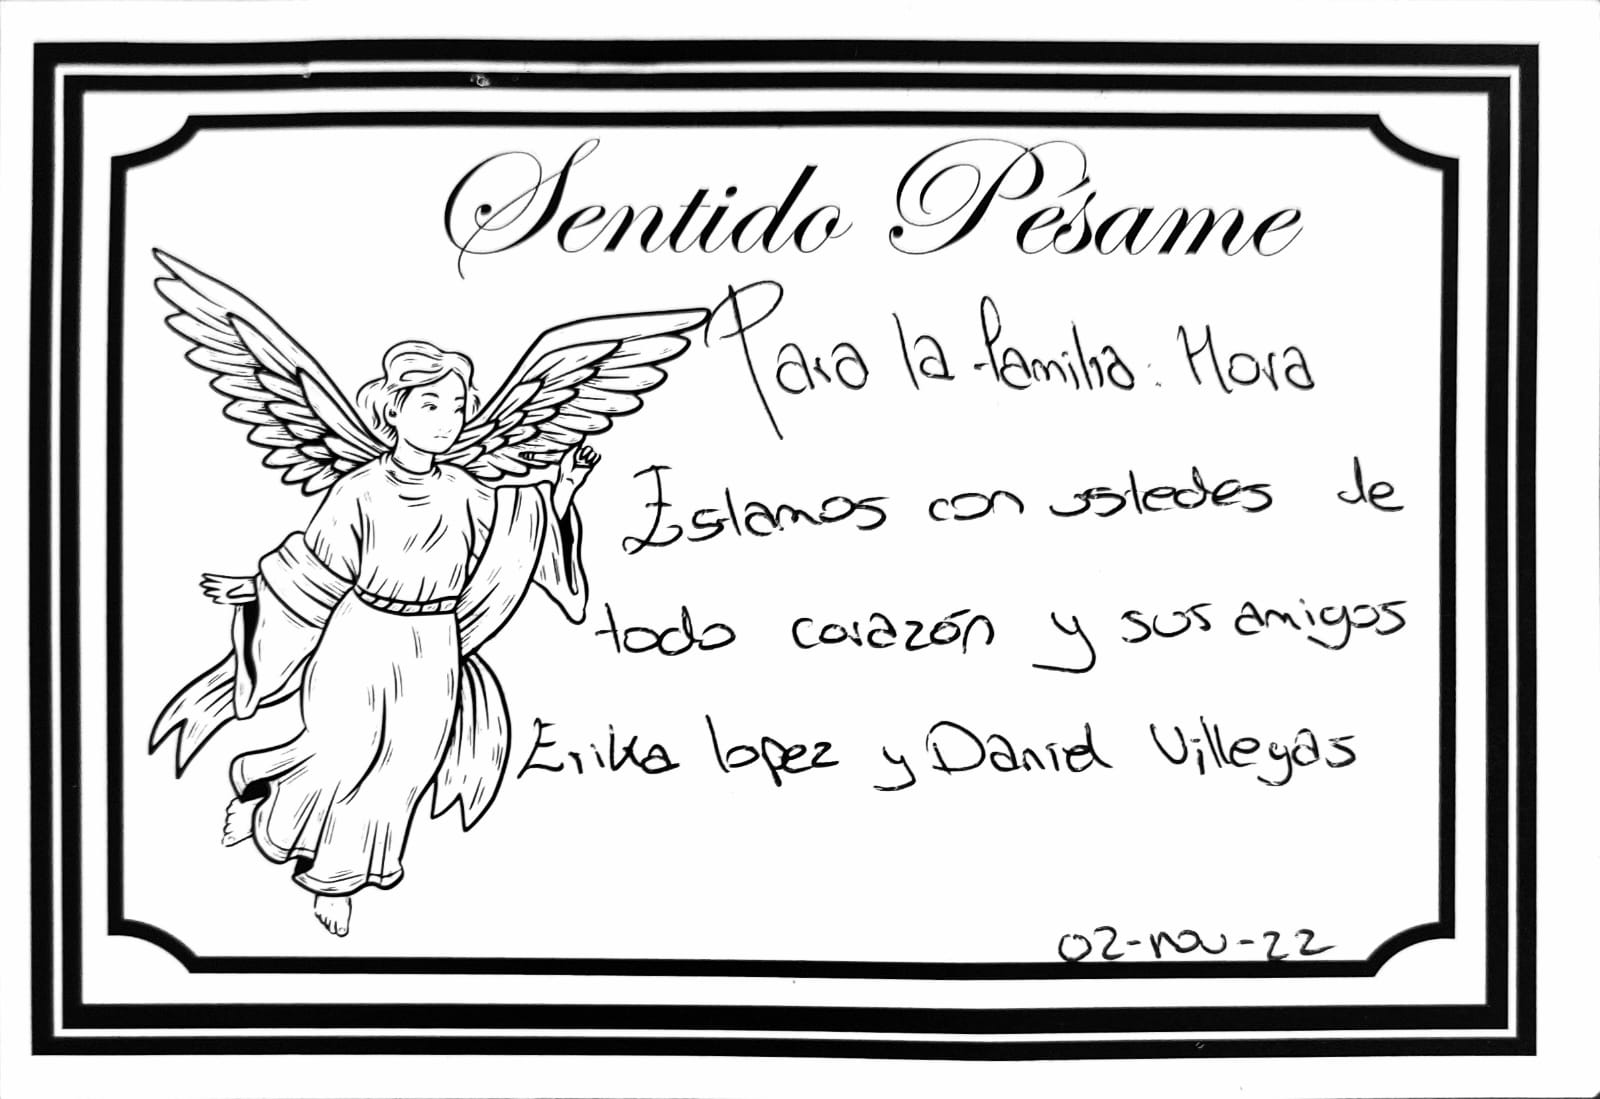 Sentido Pésame
Para la familia: Mora
Estamos con ustedes de
todo corazón y sus amigos
Erika lopez y Daniel Villegas
02-nov-22